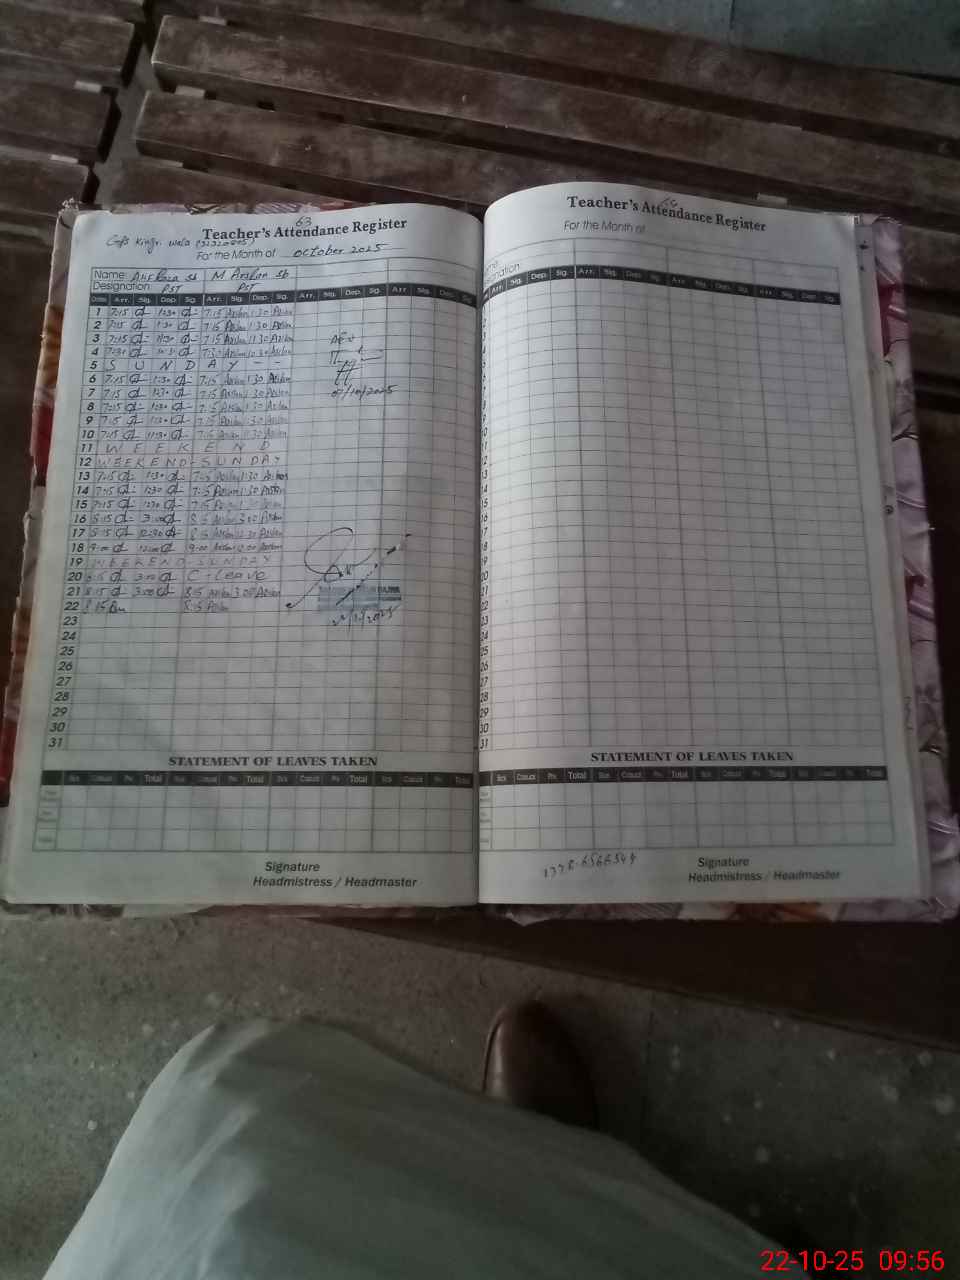 63
Teacher's Attendance Register
For the Month of October 2025
Name: M Arslan sb
Designation: PST PST
Date Arr. Sig. Dep. Sig. Arr. Sig. Dep. Sig. Arr. Sig. Dep. Sig. Arr. Sig. Dep. Sig.
1 7:15 1:30 7:15 Arslan 1:30 Arslan
2 7:15 1:30 7:15 Arslan 1:30 Arslan
3 7:15 11:30 7:15 Arslan 11:30 Arslan
4 7:30 10:30 7:30 Arslan 10:30 Arslan
5 S U N D A Y - -
6 7:15 1:30 7:15 Arslan 1:30 Arslan
7 7:15 1:30 7:15 Arslan 1:30 Arslan
8 7:15 1:30 7:15 Arslan 1:30 Arslan
9 7:15 1:30 7:15 Arslan 1:30 Arslan
10 7:15 11:30 7:15 Arslan 11:30 Arslan
11 W E E K E N D
12 WEEKEND-SUNDAY
13 7:15 1:30 7:15 Arslan 1:30 Arslan
14 7:15 1:30 7:15 Arslan 1:30 Arslan
15 7:15 1:30 7:15 Arslan
16 8:15 3:00 8:15 Arslan 3:00 Arslan
17 8:15 12:30 8:15 Arslan 12:30 Arslan
18 9:00 12:00 9:00 Arslan 12:00 Arslan
19 WEEKEND-SUNDAY
20 8:15 3:00 C-Leave
21 8:15 3:00 8:15 Arslan 3:00 Arslan
22 8:15 8:15 Arslan
23
24
25
26
27
28
29
30
31
AEO
/10/2025
STATEMENT OF LEAVES TAKEN
Sick Casual Priv. Total Sick Casual Priv. Total Sick Casual Priv. Total Sick Casual Priv. Total
Signature
Headmistress / Headmaster
Teacher's Attendance Register
For the Month of
Arr. Sig. Dep. Sig. Arr. Sig. Dep. Sig. Arr. Sig. Dep. Sig. Arr. Sig. Dep. Sig.
STATEMENT OF LEAVES TAKEN
Sick Casual Priv. Total Sick Casual Priv. Total Sick Casual Priv. Total Sick Casual Priv. Total
Signature
Headmistress / Headmaster
22-10-25 09:56